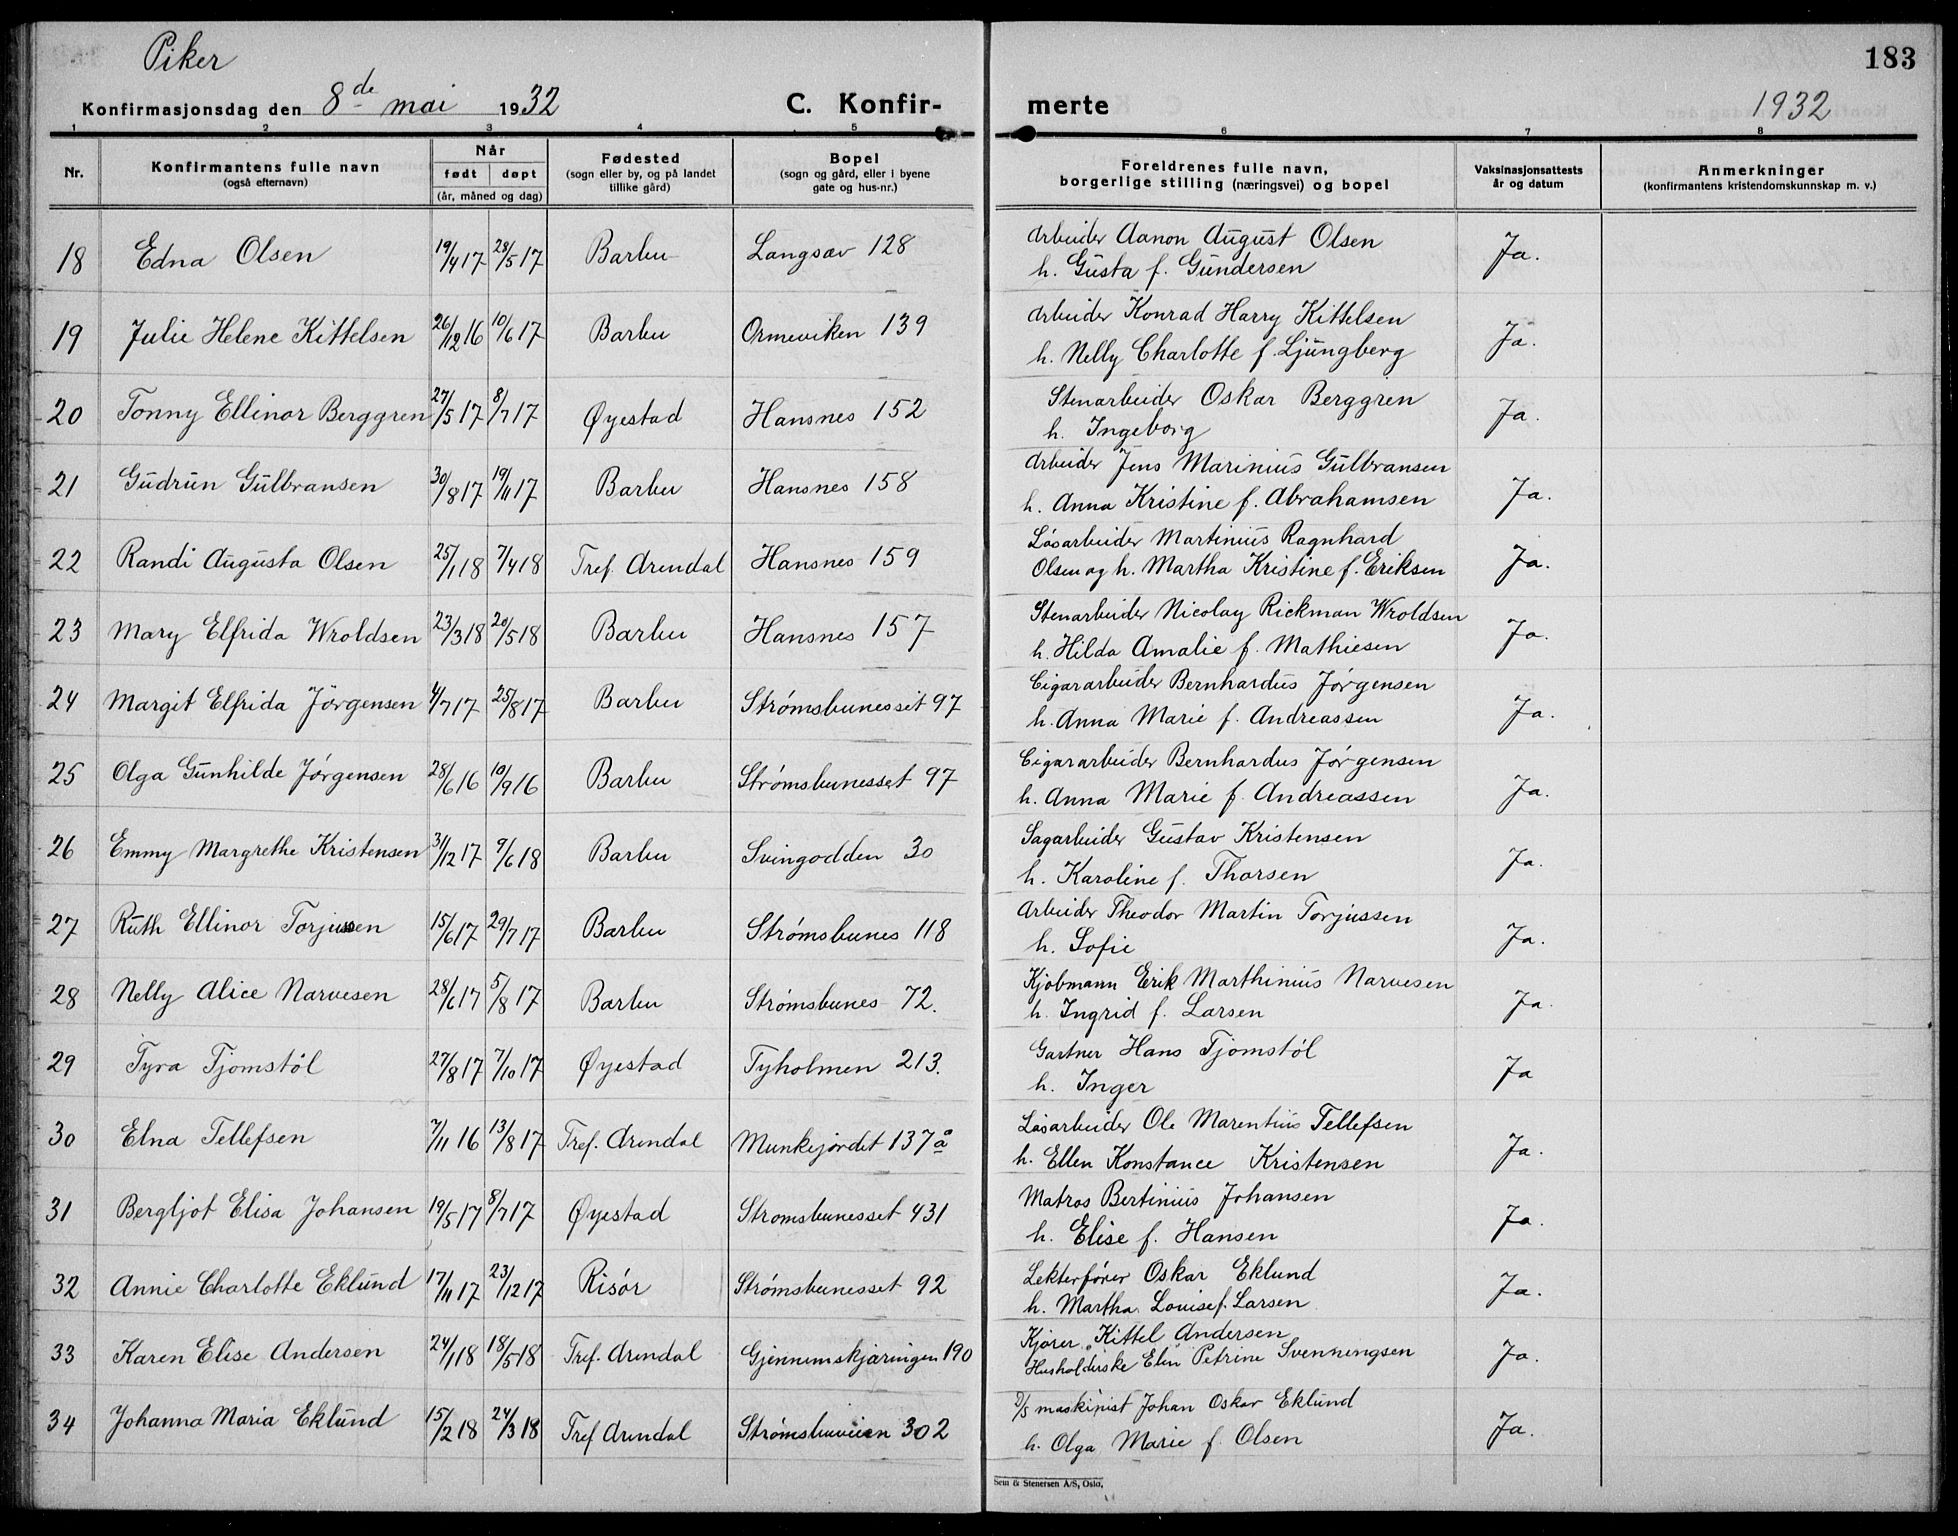 Piker
183
Konfirmasjonsdag den 8de mai 1932 C. Konfir- merte 1932
1 2 3 4 5 6 7 8
Nr.
Konfirmantens fulle navn
(også efternavn)
Når
født døpt
(år, måned og dag)
Fødested
(sogn eller by, og på landet
tillike gård)
Bopel
(sogn og gård, eller i byene
gate og hus-nr.)
Foreldrenes fulle navn,
borgerlige stilling (næringsvei) og bopel
Vaksinasjonsattests
år og datum
Anmerkninger
(konfirmantens kristendomskunnskap m. v.)
18 Edna Olsen 19/4 17 28/5 17 Barbu Langsæv 128 Arbeider Aanon August Olsen Ja.
h. Gusta f. Gundersen
19 Julie Helene Kittelsen 26/12 16 10/6 17 Barbu Ormeviken 139 Arbeider Konrad Harry Kittelsen Ja.
h. Nelly Charlotte f. Ljungberg
20 Tonny Ellinor Berggren 27/5 17 8/7 17 Øyestad Hansnes 152 Stenarbeider Oskar Berggren Ja.
h. Ingeborg
21 Gudrun Gulbransen 30/8 17 19/11 17 Barbu Hansnes 158 Arbeider Jens Marinius Gulbransen Ja.
h. Anna Kristine f. Abrahamsen
22 Randi Augusta Olsen 25/1 18 7/4 18 Tref. Arendal Hansnes 159 Løsarbeider Martinius Ragnhard Ja.
Olsen og h. Martha Kristine f. Eriksen
23 Mary Elfrida Wroldsen 23/3 18 20/5 18 Barbu Hansnes 157 Stenarbeider Nicolay Rickman Wroldsen Ja.
h. Hilda Amalie f. Mathiesen
24 Margit Elfrida Jörgensen 4/7 17 25/8 17 Barbu Strømsbunesset 97 Cigararbeider Bernhardus Jørgensen Ja.
h. Anna Marie f. Andreassen
25 Olga Gunhilde Jørgensen 28/6 16 10/9 16 Barbu Strømsbunesset 97 Cigararbeider Bernhardus Jørgensen Ja.
h. Anna Marie f. Andreassen
26 Emmy Margrethe Kristensen 31/12 17 9/6 18 Barbu Svingodden 30 Sagarbeider Gustav Kristensen Ja.
h. Karoline f. Thorsen
27 Ruth Ellinor Torjussen 15/6 17 29/7 17 Barbu Strømsbunes 118 Arbeider Theodor Martin Torjussen Ja.
h. Sofie
28 Nelly Alice Narvesen 28/6 17 5/8 17 Barbu Strømsbunes 72. Kjøbmann Erik Marthinius Narvesen Ja.
h. Ingrid f. Larsen
29 Tyra Tjomstøl 27/8 17 7/10 17 Øyestad Tyholmen 213. Gartner Hans Tjomstøl Ja
h. Inger
30 Elna Tellefsen 7/11 16 13/8 17 Tref. Arendal Munkejordet 137 a Løsarbeider Ole Marentius Tellefsen Ja.
h. Ellen Konstance Kristensen
31 Bergljot Elisa Johansen 19/5 17 8/7 17 Øyestad Stromsbunesset 431 Matros Bertinius Johansen Ja.
h. Elise f. Hansen
32 Annie Charlotte Eklund 17/11 17 23/12 17 Risør Strømsbunesset 92 Lekterfører Oskar Eklund Ja.
h. Martha Louise f. Larsen
33 Karen Elise Andersen 24/1 18 18/5 18 Tref. Arendal Gjennemskjæringen 190 Kjører Kittel Andersen Ja.
Husholderske Elin Petrine Svenningsen
34 Johanna Maria Eklund 15/2 18 24/3 18 Tref Arendal Strømsbuveien 302 D/S maskinist Johan Oskar Eklund Ja.
h. Olga Marie f. Olsen
Sem & Stenersen A/S, Oslo.